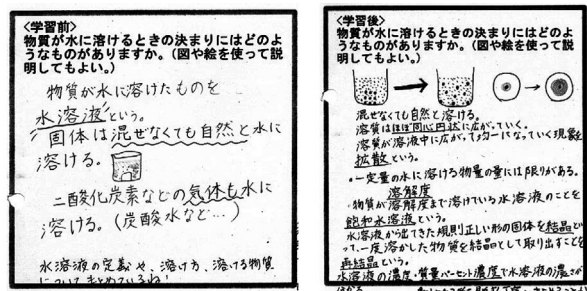 <学習前>
物質が水に溶けるときの決まりにはどのよ
うなものがありますか。(図や絵を使って説
明してもよい。)
物質が水に溶けたものを
水溶液という。
固体は混ぜなくても自然と水に
溶ける。
二酸化炭素などの気体も水に
溶ける。(炭酸水など…)
水溶液の定義や、溶け方、溶ける物質
についてまとめているね!
<学習後>
物質が水に溶けるときの決まりにはどのよ
うなものがありますか。(図や絵を使って説
明してもよい。)
混ぜなくても自然と溶ける。
溶質はほぼ同心円状に広がっていく。
溶質が溶液中に広がって均一になっていく現象を
拡散という。
・一定量の水に溶ける物質の量には限りがある。
溶解度
・物質が溶解度まで溶けている水溶液のことを
飽和水溶液という。
水溶液から出てきた規則正しい形の固体を結晶とい
って、一度溶かした物質を結晶として取り出すことを
再結晶という。
水溶液の濃度・質量パーセント濃度で水溶液の濃さが